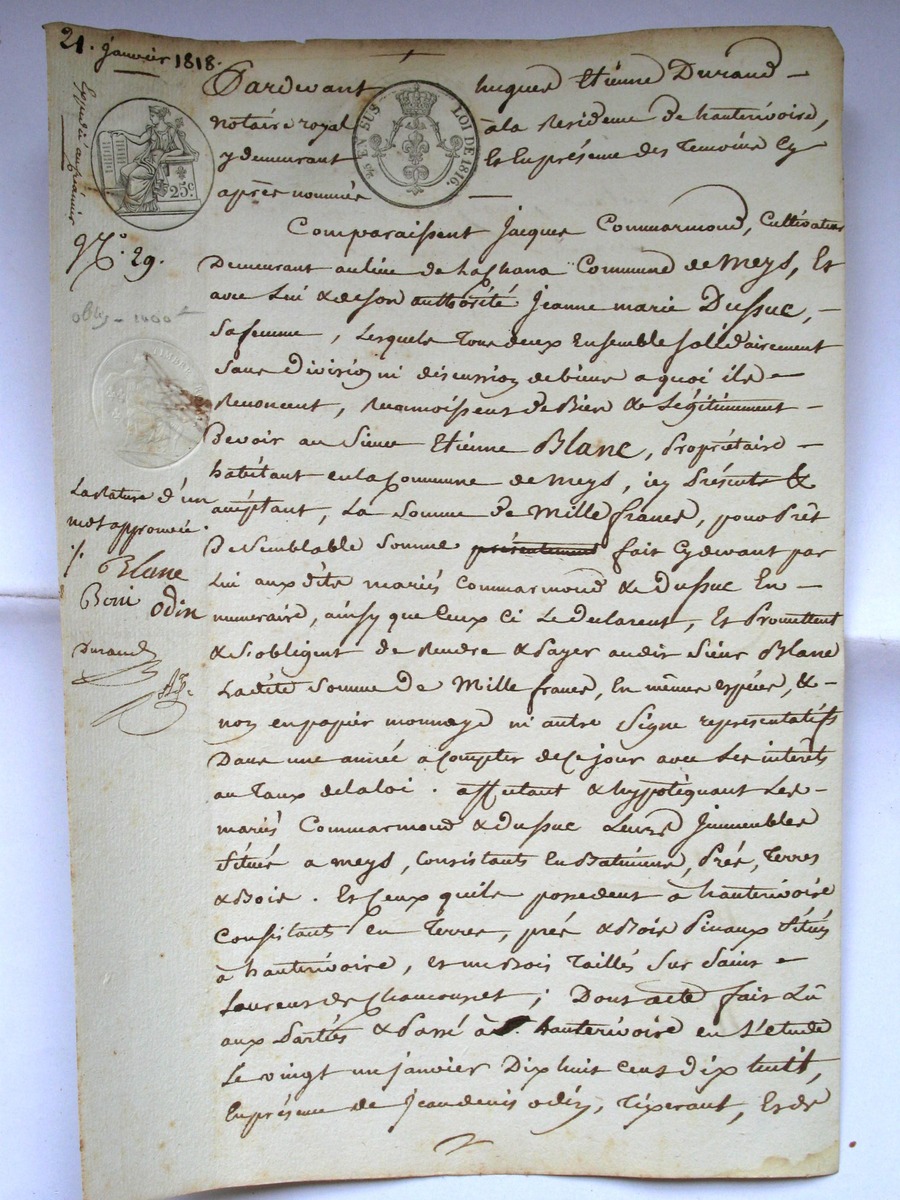 21. janvier 1818.
Expédié au premier
25 c
EN SUS LOI DE 1816.
N.° 29.
oblig - 1000
La rature d'un
mot approuvée.
Blanc
Odin
Durand
Pardevant hugues Etiénne Durand -
notaire royal à la Residence de hauterivoire,
y demeurant Et En présence des Temoins Cy
après nommés -
Comparaissent Jacques Commarmond, Cultivateur
Demeurant au lieu de Commune de Meys, Et
avec Lui & de son authorité Jeanne marie Dussuc, -
Sa femme, Lesquels Tous deux Ensemble solidairement
Sans Division ni discussion de biens a quoi ils -
Renoncent, Reconnoissent de Bien & Légitimement -
Devoir au Sieur Etiénne Blanc, Propriétaire -
habitant en la Commune de Meys, icy Présent &
acéptant, La Somme de Mille francs, pour Prêt
De Semblable Somme présentement fait Cydevant par
Lui aux dits mariés Commarmond & Dussuc En
numeraire, ainsy que Ceux Ci Le Declarent, Et Promettent
& S'obligent de Rendre & Payer audit Sieur Blanc
La dité Somme De Mille francs, En mêmes espéces, & -
non en papier monnoye ni autre Signe representatifs
Dans une année a Compter de Ce jour avec Les intérêts
au Taux de la loi. affectant & hypotéquant Les -
mariés Commarmond & Dussuc Leurs Immeubles
Situés a Meys, Consistants En Batiments, Prés, Terres
& Bois. Et Ceux quils possedent à hauterivoire
Consistants en Terres, prés & Bois Pinaux Situés
à hauterivoire, et un Bois Taillés Sur Saint -
Laurent de Chamousset; Dont acte fait Lû
aux Partiés & Passé à hauterivoire en L'etude
Le vingt un janvier Dix huit cent dix huit,
En présence de Jean denis odin, Tixerant, Et de